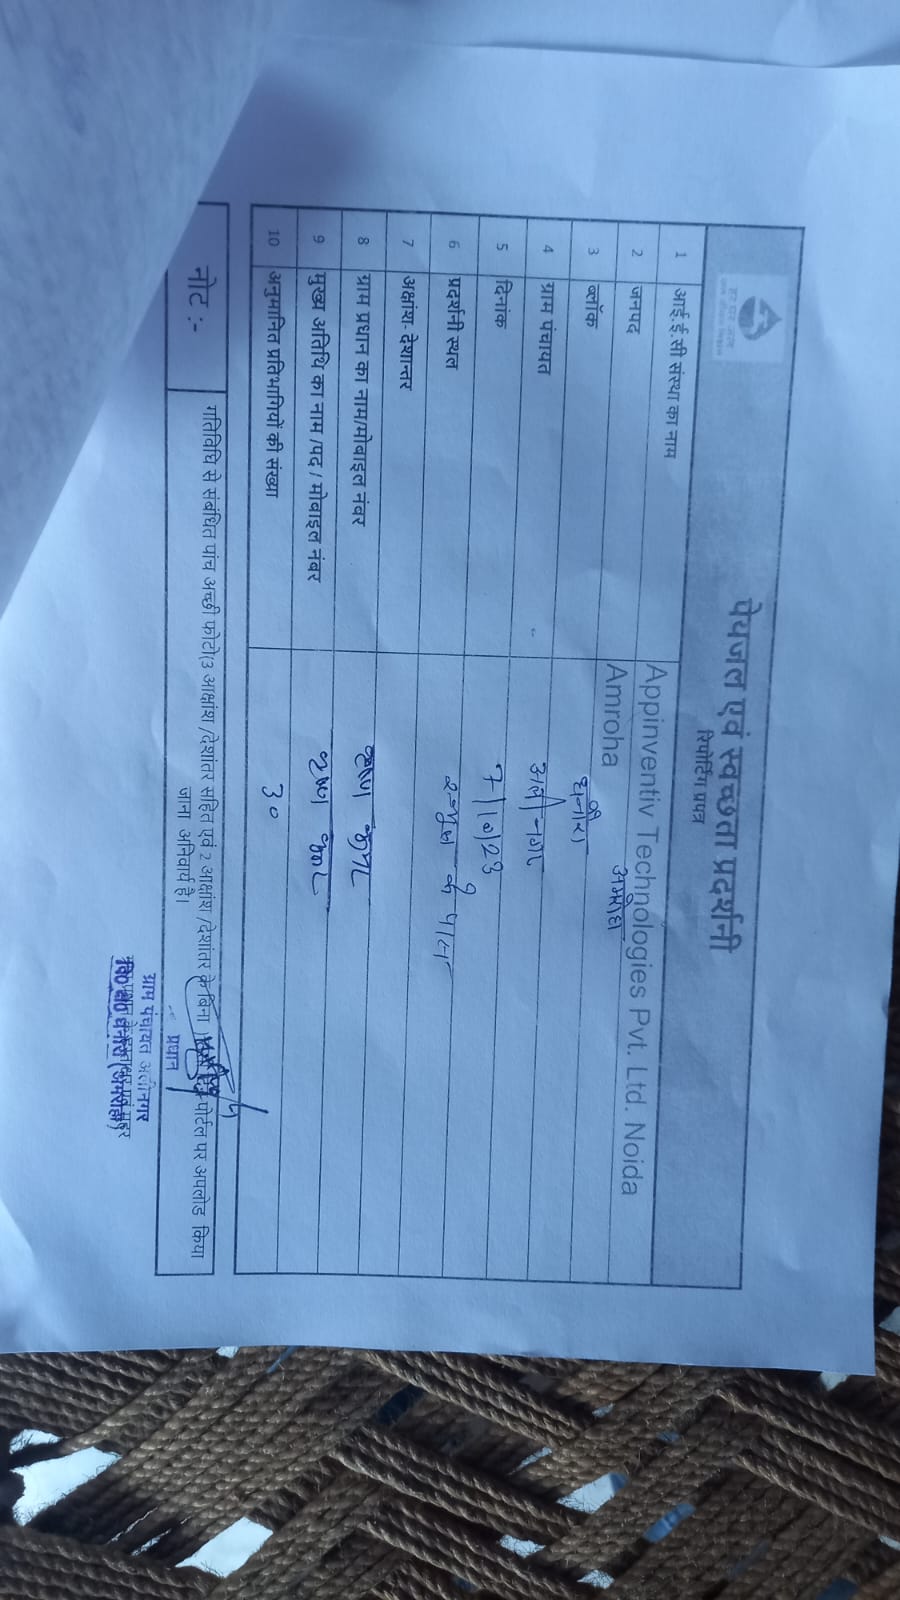 हर घर जल
जल जीवन मिशन
पेयजल एवं स्वच्छता प्रदर्शनी
रिपोर्टिंग प्रपत्र
1 आई.ई.सी संस्था का नाम Appinventiv Technologies Pvt. Ltd. Noida
2 जनपद Amroha अमरोहा
3 ब्लॉक धनौरा
4 ग्राम पंचायत अलीनगर
5 दिनांक
6 प्रदर्शनी स्थल के पास
7 अक्षांश- देशान्तर
8 ग्राम प्रधान का नाम/मोबाइल नंबर
9 मुख्य अतिथि का नाम /पद / मोबाइल नंबर
10 अनुमानित प्रतिभागियों की संख्या 30
नोट :- गतिविधि से संबंधित पांच अच्छी फोटो(3 आक्षांश /देशांतर सहित एवं 2 आक्षांश /देशांतर के बिना ) पोर्टल पर अपलोड किया
जाना अनिवार्य है।
प्रधान
ग्राम पंचायत अलीनगर
वि० ख० धनौरा (अमरोहा)